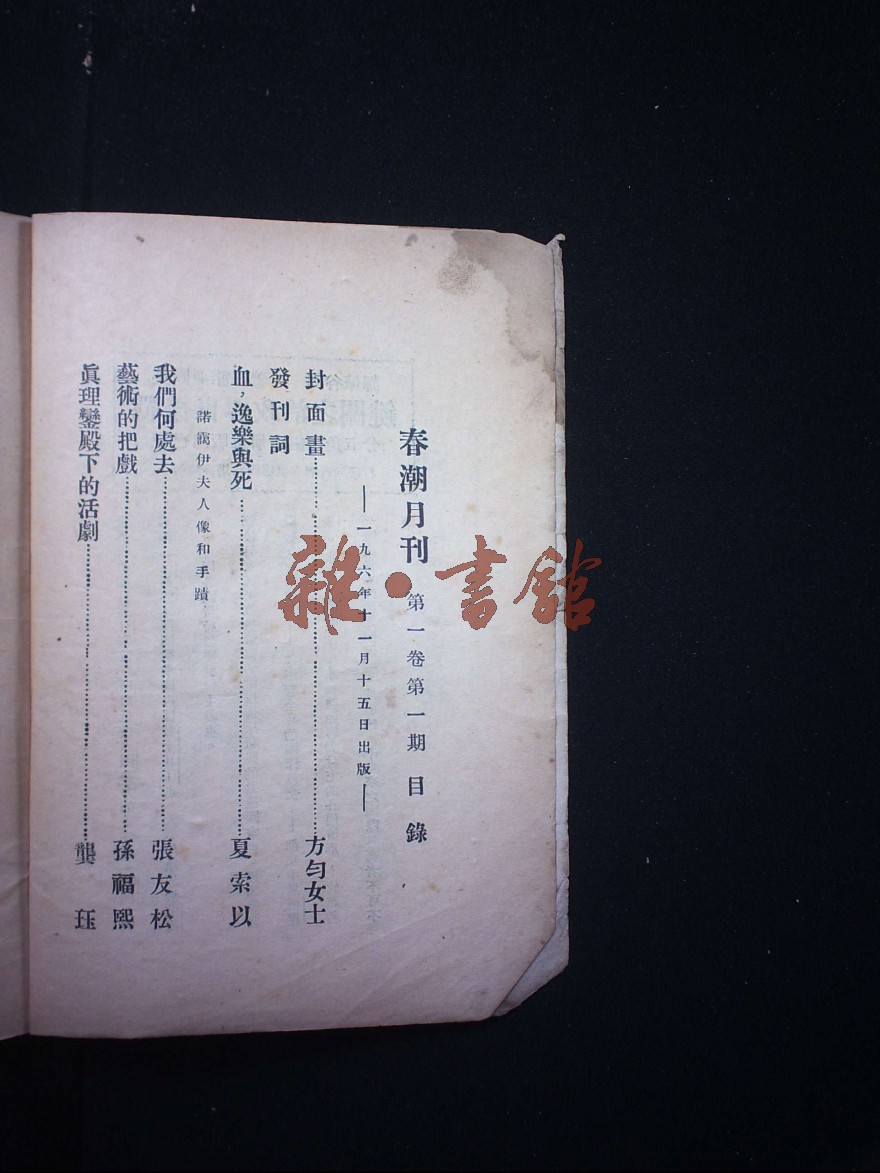 春潮月刊 第一卷第一期目錄
一九六一年十一月十五日出版
封面畫 方匀女士
發刊詞
血，逸樂與死 夏索以
諾靄伊夫人像和手蹟
我們何處去 張友松
藝術的把戲 孫福熙
眞理鑾殿下的活劇 龔珏
雜·書館